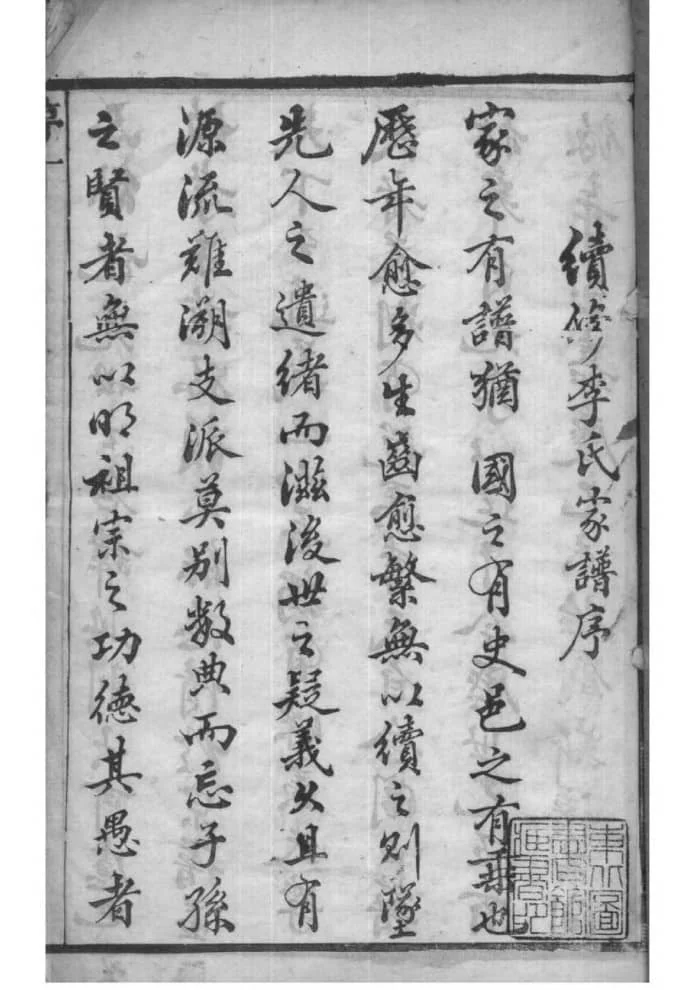 續修李氏家譜序
家之有譜猶 國之有史邑之有乘也
歷年愈多生齒愈繁無以續之則墜
先人之遺緒而滋後世之疑義久且有
源流難溯支派莫别数典而忘子孫
之賢者無以明祖宗之功德其愚者
序一